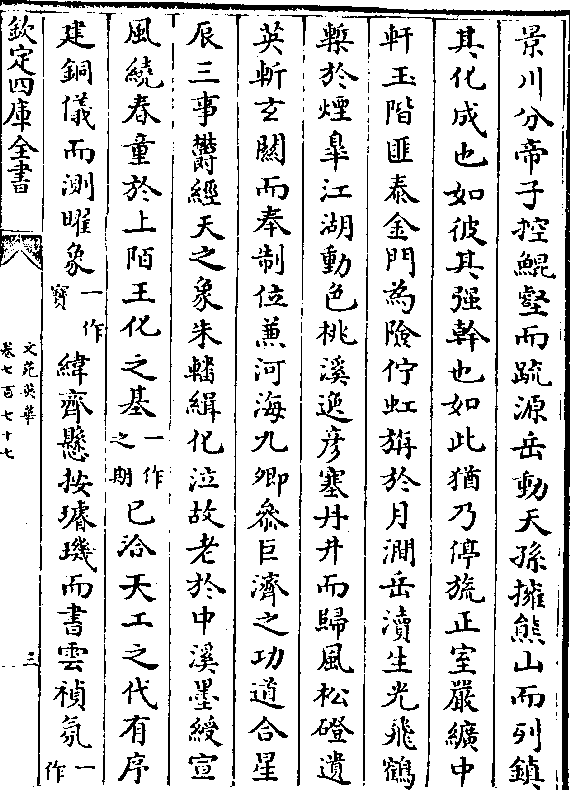 景川分帝子控鯤壑而䟽源岳動天孫擁熊山而列鎮
其化成也如彼其强幹也如此猶乃停旒正室嚴纊中
軒玉階匪泰金門為險佇虹旃於月澗岳瀆生光飛鶴
槧於煙臯江湖動色桃溪逸彦塞丹井而歸風松磴遺
英斬玄關而奉制位兼河海九卿叅巨濟之功道合星
辰三事鬱經天之象朱轓緝化泣故老於中溪墨綬宣
風繞春童於上陌王化之基一作之期已洽天工之代有序
建銅儀而測曜象一作寳緯齊懸按璿璣而書雲禎氛一作
欽定四庫全書
文苑英華
卷七百七十七
三